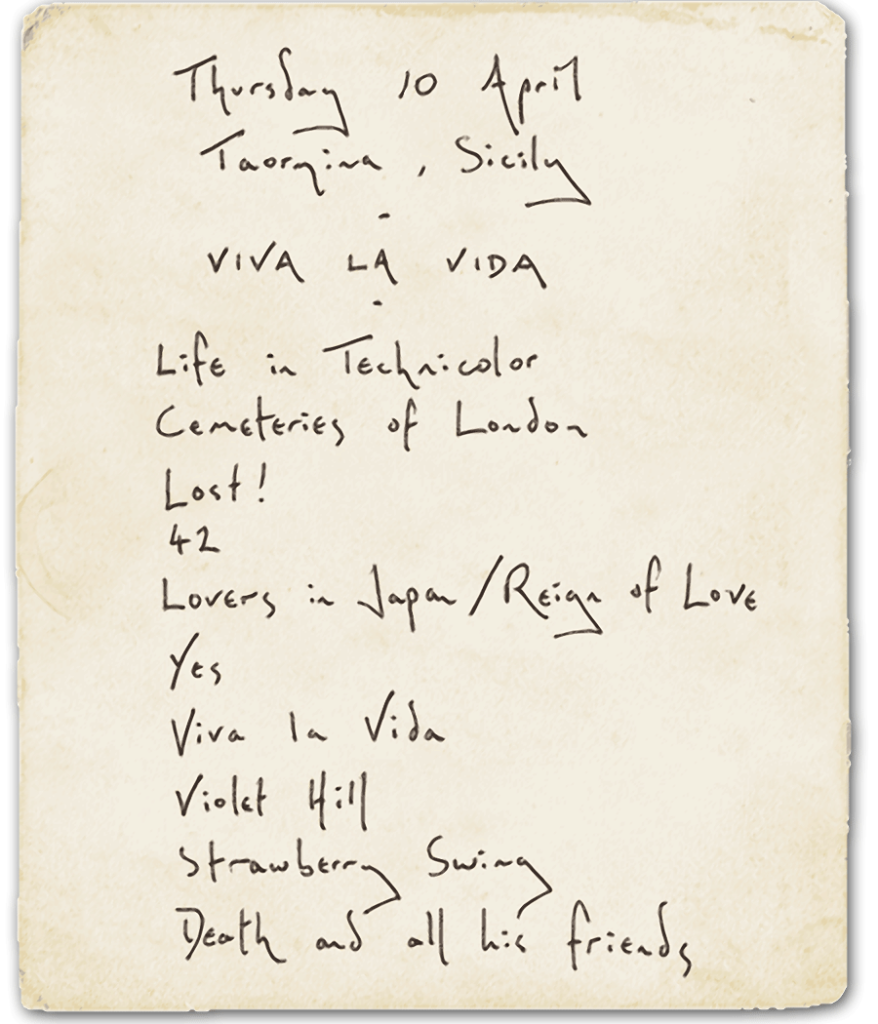 Thursday 10 April
Taormina, Sicily
-
VIVA LA VIDA
-
Life in Technicolor
Cemeteries of London
Lost!
42
Lovers in Japan/Reign of Love
Yes
Viva la Vida
Violet Hill
Strawberry Swing
Death and all his friends